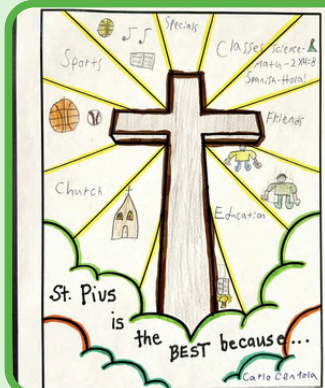 Specials
Sports
Classes Science-
Math-2x4=8
Spanish-Hola!
Friends
Church
Education
St. Pius
is
the BEST because...
Carlo Centola